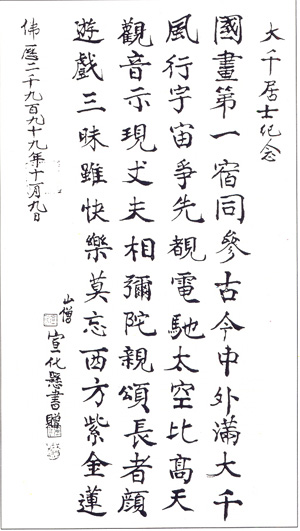 大千居士纪念
國畫第一宿同參古今中外滿大千
風行宇宙爭先覩電馳太空比高天
觀音示現丈夫相彌陀親頌長者顏
遊戲三昧雖快樂莫忘西方紫金蓮
山僧
宣化懸書贈
佛曆二千九百九十九年十一月九日